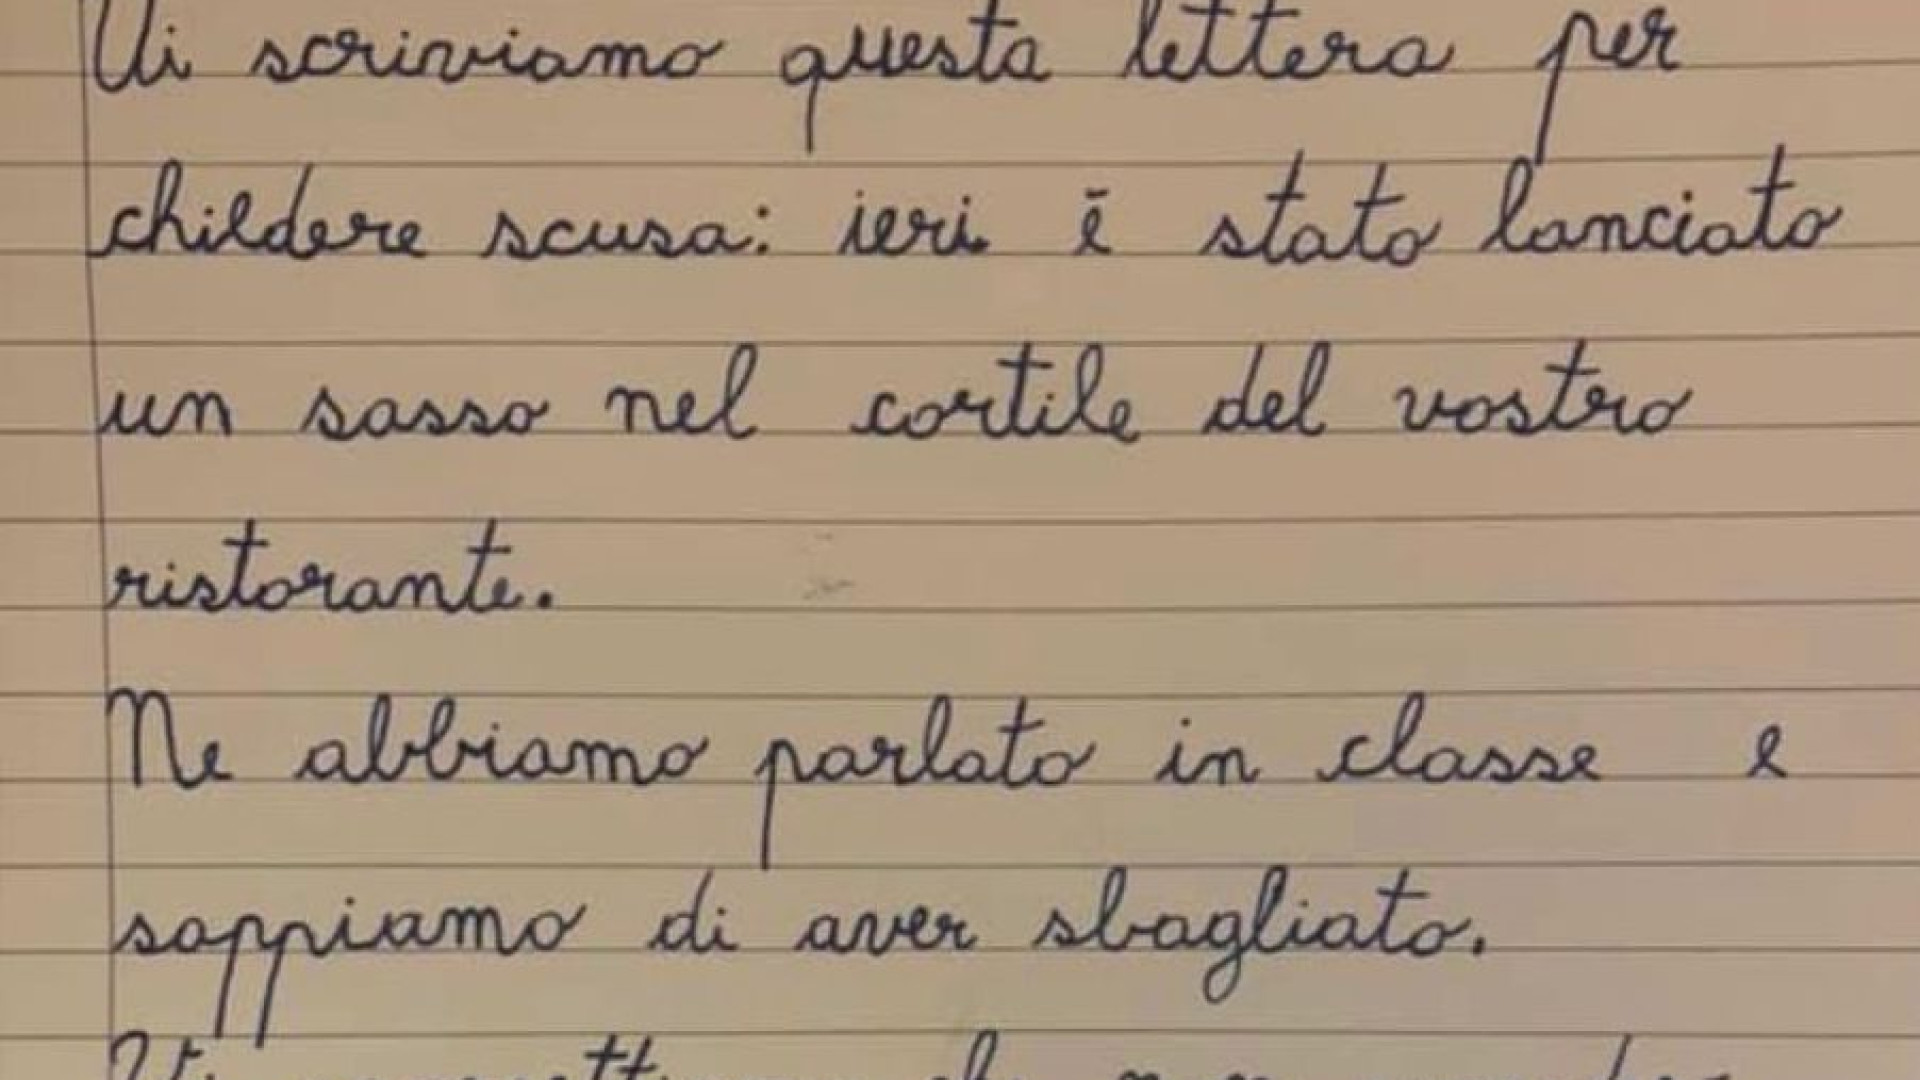 Vi scriviamo questa lettera per
childere scusa: ieri è stato lanciato
un sasso nel cortile del vostro
ristorante.
Ne abbiamo parlato in classe e
sappiamo di aver sbagliato.
Vi che non